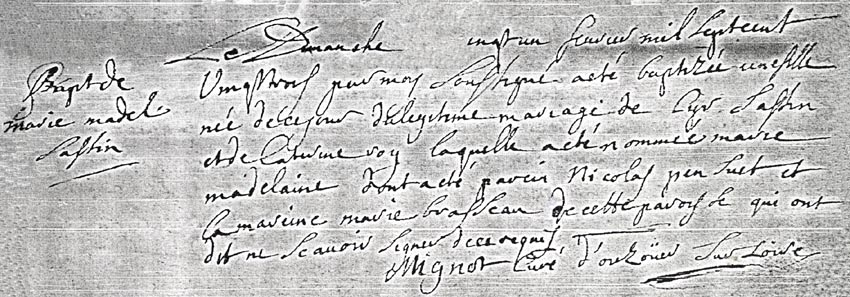 Bapt de
marie madel.
Sassin
Le Dimanche vingt un fevrier mil sept cent
vingt trois par moy soussigné a eté baptizée une fille
née de ce jour du legitime mariage de Cyr Sassin
et de Caterine roy laquelle a eté nommée marie
madelaine dont a eté parein Nicolas pensuet et
la mareine marie brasseau de cette paroisse qui ont
dit ne scavoir signer de ce requis
Mignot Curé d'ouzoüer sur Loire